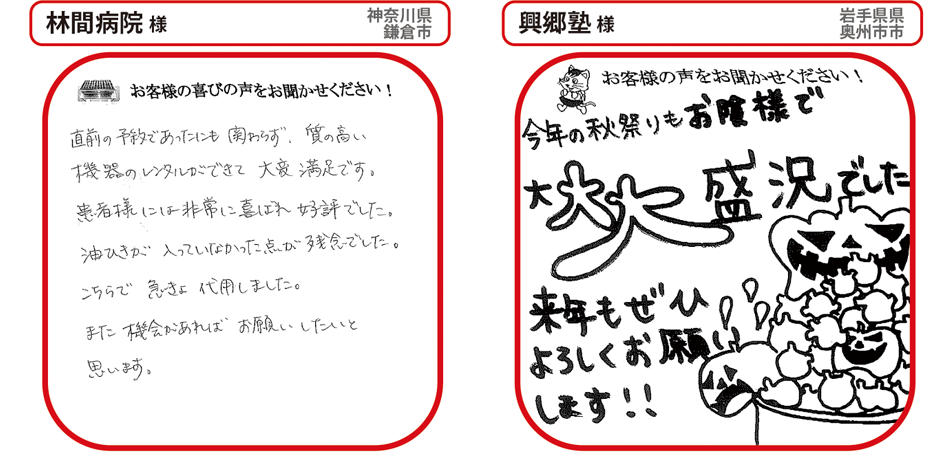 林間病院 様
神奈川県
鎌倉市
お客様の喜びの声をお聞かせください！
直前の予約であったにも関わらず、質の高い
機器のレンタルができて 大変満足です。
患者様には非常に喜ばれ好評でした。
油ひきが入っていなかった点が残念でした。
こちらで 急きょ 代用しました。
また 機会があれば お願いしたいと
思います。
興郷塾 様
岩手県県
奥州市市
お客様の声をお聞かせください！
今年の秋祭りもお陰様で
大大大盛況でした
来年もぜひ
よろしくお願い
します!!